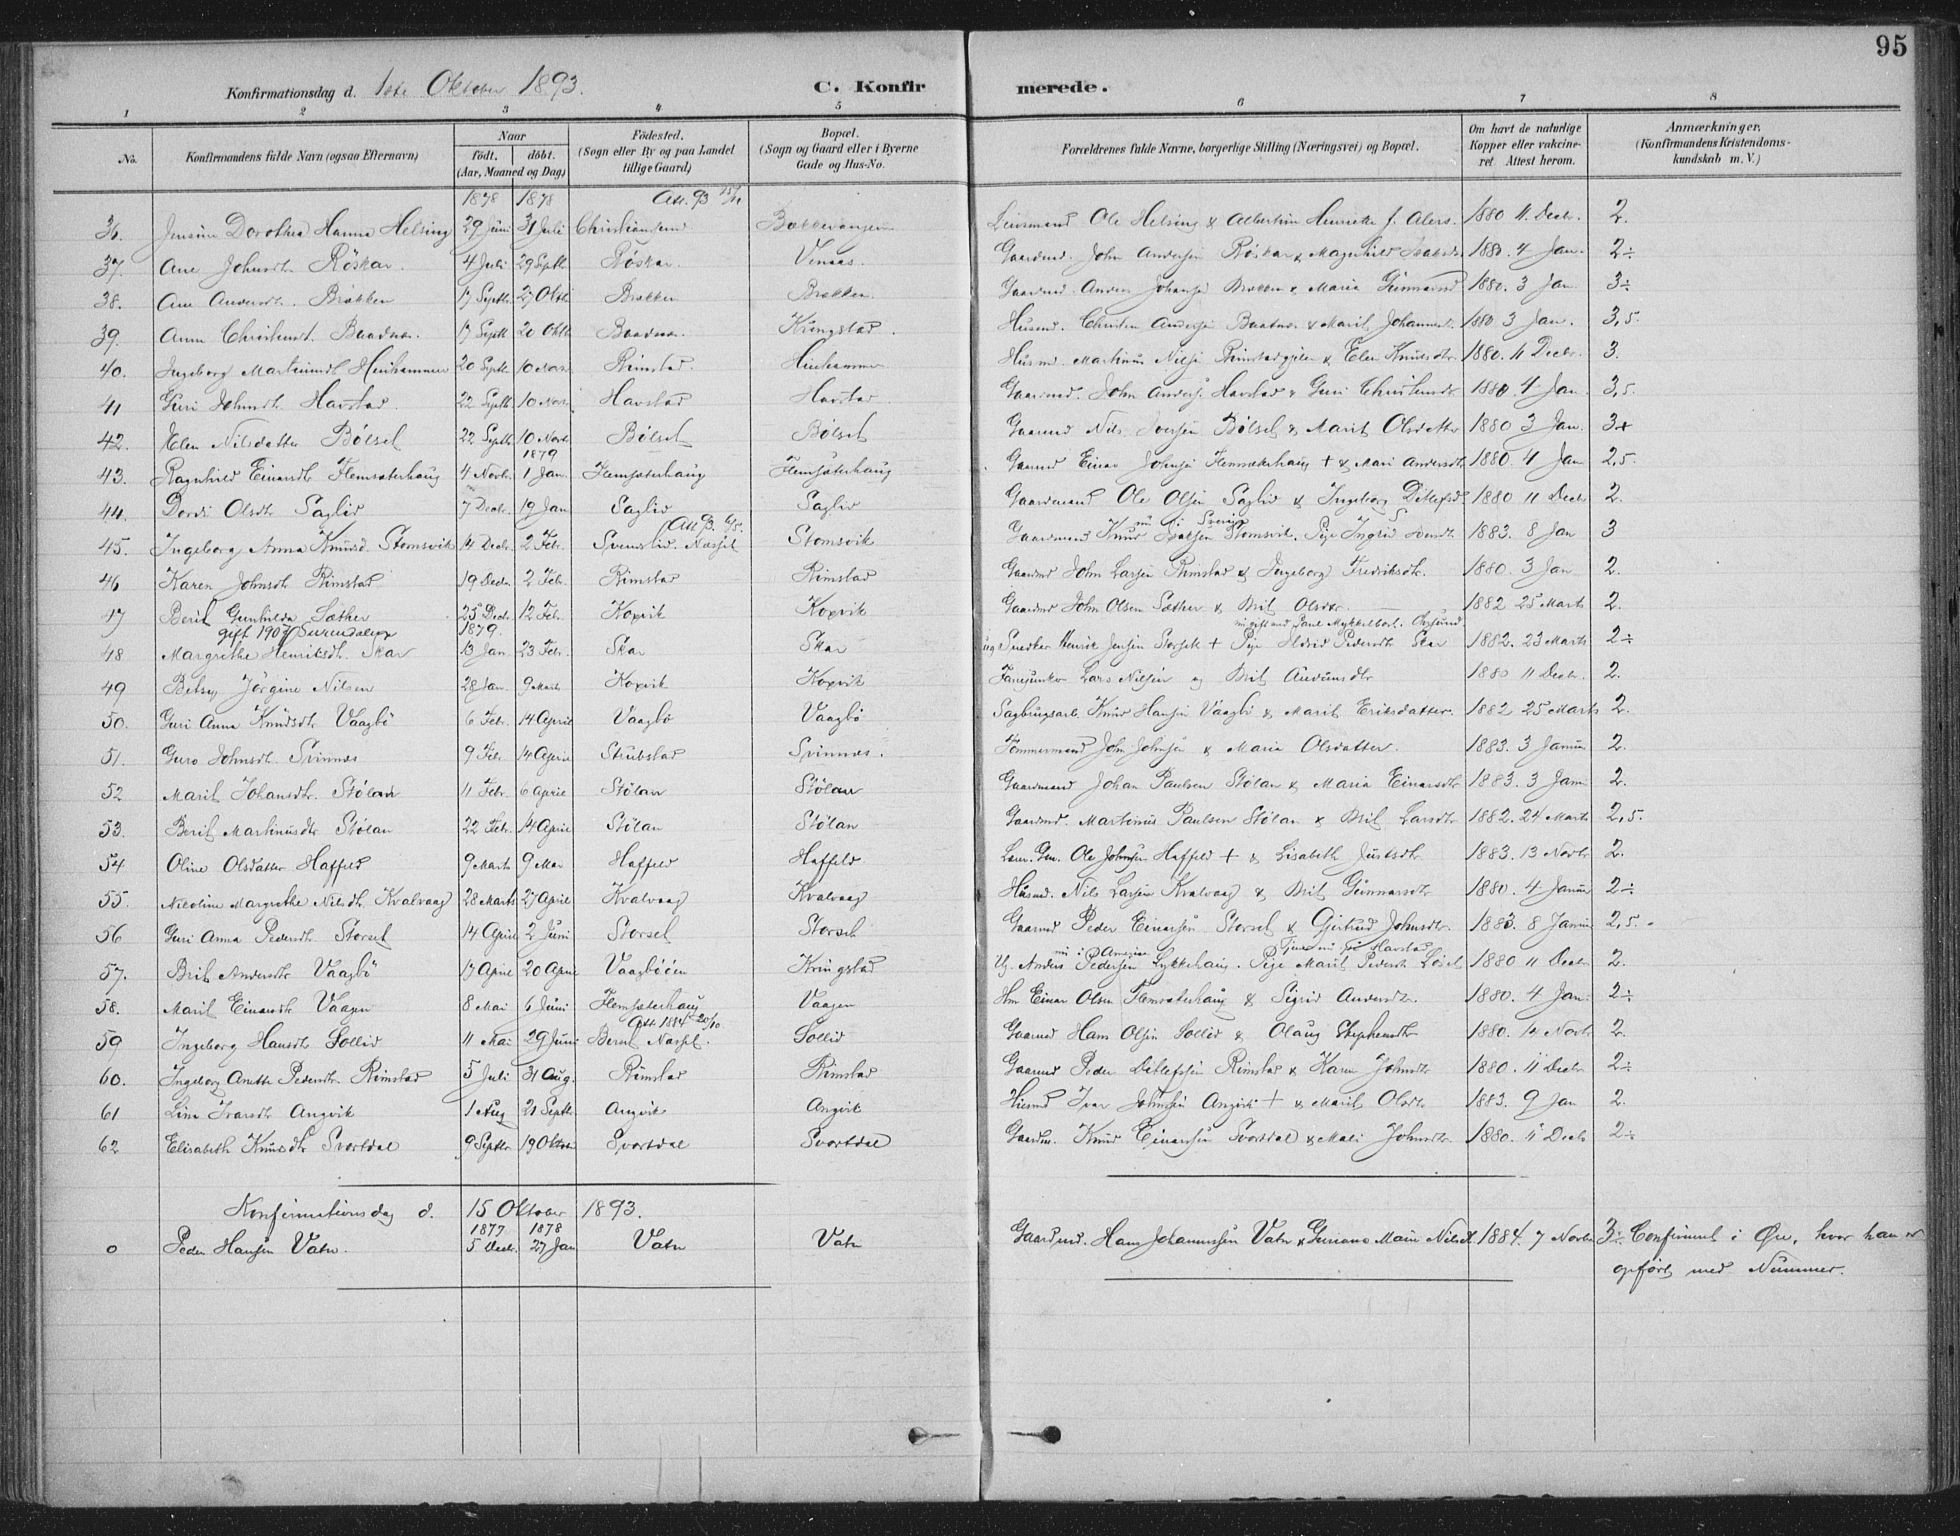 95
Konfirmationsdag d. 1ste Oktober 1893. C. Konfirmerede.
1 2 3 4 5 6 7 8
No. Konfirmandens fulde Navn (ogsaa Efternavn) Naar født, døbt. (Aar, Maaned og Dag) Fødested. (Sogn eller By og paa Landet tillige Gaard) Bopæl. (Sogn og Gaard eller i Byerne Gade og Hus-No. Forældrenes fulde Navne, borgerlige Stilling (Næringsvei) og Bopæl. Om havt de naturlige Kopper eller vakcineret. Attest herom. Anmærkninger. (Konfirmandens Kristendomskundskab m. V.)
1878 1878 Att. 93
36. Jensine Dorothea Hanna Helsing 29 Juni 31 Juli Christiansund Bækkevangen Lensmand Ole Helsing & Albertine Henriette f. Alers. 1880 11 Decbr. 2.
37. Ane Johnsdtr Röskar. 4 Juli 29 Septb Röskar. Venaas. Gaardmd. John Andersen Röskar & Magnhild 1880. 4 Jan. 2÷
38. Ane Andersdt. Brækken 17 Septb. 27 Oktb Brækken Brækken. Gaardmd. Anders Johansen Brækken & Maria Gunnarsd 1880. 3 Jan. 3÷
39. Anne Christensdt. Baadnæs. 17 Septb 20 Oktb Baadnæs. Kringstad. Husmd. Christen Andersen Baadnæs & Marit Johannesdt. 1880 3 Jan. 3,5.
40. Ingeborg Martinusdt Heinhammer 20 Septb 10 Novb Rimstad. Heinhammer Husmd. Martinus Nilsen Rimstadgjelen & Elen Knudsdtr. 1880. 11 Decbr. 3.
41 Guri Johnsdt. Havstad. 22 Septb. 10 Novb Havstad Havstad. Gaardmd. John Anders. Havstad & Guri Christensdt 1880 4 Jan. 3,5.
42. Elen Nilsdatter Bölset 22 Septb 10 Novb Bölset Bölset Gaardmd Nils Iversen Bölset & Marit Olsdatter 1880 3 Jan. 3+
1879
43. Ragnhild Einarsdt Flemsæterhaug 4 Novbr. 1 Jan. Flemsæterhaug Flemsæterhaug Gaardmd Einar Johnsen Flemsæterhaug + & Mari Andersdt. 1880. 4 Jan 2,5.
44. Dordi Olsdtr Saglid 7 Decbr. 19 Jan Saglid Saglid Gaardmand Ole Olsen Saglid & Ingeborg Ditlefsd 1880 11 Decb 2.
Att 93 nu i Sverige
45. Ingeborg Anna Knudsd. Stomsvik 14 Decbr. 2 Febr. Svenslid. Næsset Stomsvik Gaardmand Knud Stomsvik. Pige Ingrid 1883. 8 Jan 3
46 Karen Johnsdt Rimstad 19 Decbr. 2 Febr. Rimstad Rimstad Gaardmd John Larsen Rimstad & Ingeborg Fredriksdtr. 1880. 3 Jan 2.
47 Berit Gunhilda Sæther 25 Decb. 12 Feb. Koxvik Koxvik Gaardmd John Olsen Sæther & Brit Olsdtr. 1882 25 Marts 2.
gift 1907 Surendalen 1879. nu gift med Paul Myklebost.
48 Margrethe Henriksdt. Skar 13 Jan. 23 Febr. Skar Skar Snedker Henrik Jensen Storset + Pige Pedersdt Skar 1882. 23 Marts 2÷
49 Betsy Jörgine Nilsen 28 Jan. 9 Marts Koxvik Koxvik Fanejunker Lars Nilsen og Brit Audunsdtr 1880 11 Decbr. 2.
50. Guri Anna Knudsdt Vaagbö 6 Febr. 14 April Vaagbö Vaagbö Sagbrugsarb. Knud Hansen Vaagbö & Marit Eriksdatter. 1882 25 Marts 2.
51. Guro Johnsdt. Svinnes 9 Febr. 14 April Strubstad Svinnes. Tømmermand John Johnsen & Maria Olsdatter. 1883. 3 Januar 2.
52 Marit Johansdt. Stölan 11 Febr. 6 April Stölan Stölan Gaardmand Johan Paulsen Stölan & Maria Einarsdtr 1883. 3 Janu 2.
53. Berit Martinusdtr Stölan 22 Feb. 14 April Stölan Stölan Gaardmd. Martinus Paulsen Stölan & Brit Larsdtr 1882. 24 Marts 2,5.
54 Oline Olsdatter Haffeld 9 Marts 9 Mai Haffeld Haffeld Ole Johnsen Haffeld + & Lisabeth Justsdtr 1883. 13 Novbr 2.
55. Nicoline Margrethe Nilsdt. Kvalvaag 28 Marts 27 April Kvalvaag Kvalvaag Husmd. Nils Larsen Kvalvaag & Brit Gunnarsdtr 1880. 4 Januar 2÷
56 Guri Anna Pedersdt. Storset 14 April 2 Juni Storset Storset Gaardmd Peder Einarsen Storset & Gjertrud Johnsdtr. 1883. 8 Januar 2,5.
nu i Amerika Tjener nu Havstad
57. Brit Andersdtr Vaagbö 17 April 20 April Vaagböön Kringstad Ug. Anders Pedersen Lykkehaug. Pige Marit Pedersdt 1880 11 Decbr 2.
58. Marit Einarsdt Vaagen 8 Mai 6 Juni Flemsæterhaug Vaagen Hm Einar Olsen Flemsæterhaug & Sigrid Andersdtr. 1880. 4 Jan. 2÷
Att 1884 20/10
59 Ingeborg Hansdt Sollid 11 Mai 29 Juni Berset Næsset. Sollid Gaardmd Hans Olsen Sollid & Olaug Stephensdtr 1880. 14 Novb 2.
60. Ingeborg Anette Pedersdt. Rimstad 5 Juli 31 Aug. Rimstad Rimstad Gaardmd Peder Ditlefsen Rimstad & Karen Johnsdtr 1880. 11 Decbr 2÷
61 Lina Ivarsdt Angvik 1 Aug 21 Septb Angvik Angvik Husmd Ivar Johnsen Angvik + & Marit Olsdtr 1883. 9 Jan 2.
62 Elisabeth Knudsdtr Svortdal 9 Septbr 19 Oktbr Svortdal Svortdal Gaardm. Knud Einarsen Svortdal & Mali Johnsdtr. 1880. 11 Decbr 2÷
Konfirmationsdag d. 15 Oktober 1893.
1877 1878
0 Peder Hansen Vatn. 5 Decbr. 27 Jan Vatn Vatn Gaardmd. Hans Johannessen Vatn & Guriane Marie Nilsdt. 1884. 7 Novbr 3÷ Confirmert i Øre, hvor han er
opført med Nummer.